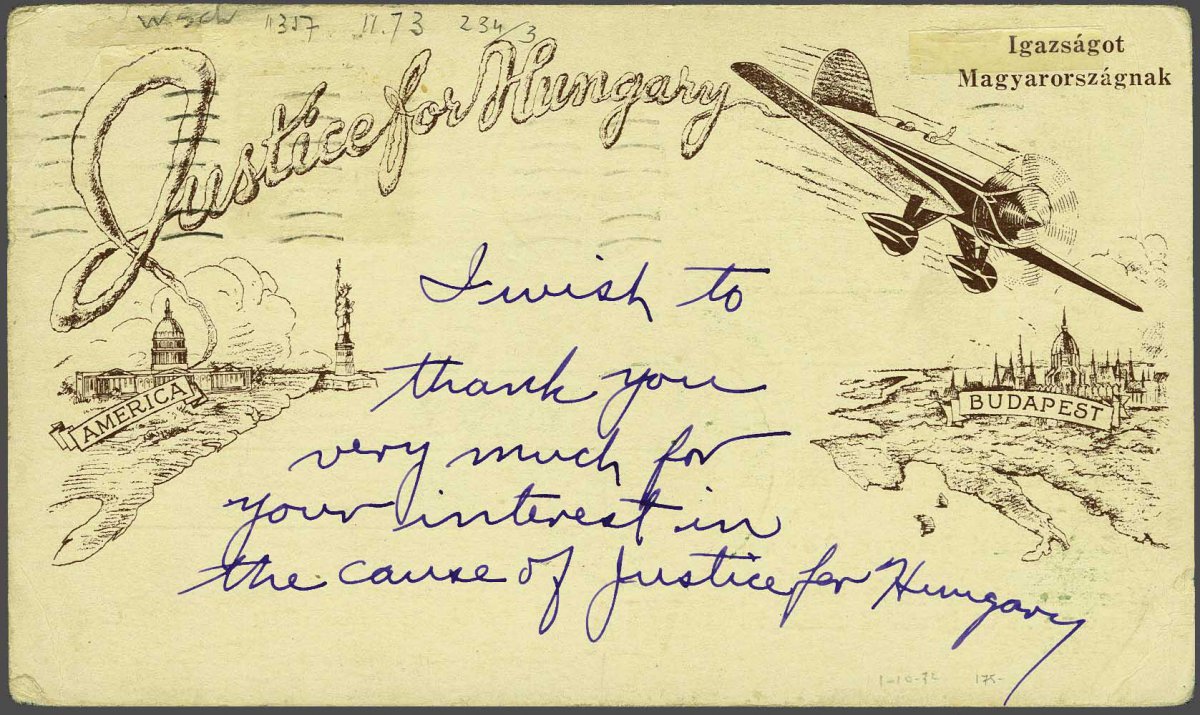 11.73 234/3
Justice for Hungary
Igazságot
Magyarországnak
AMERICA
BUDAPEST
I wish to
thank you
very much for
your interest in
the cause of Justice for Hungary
175-